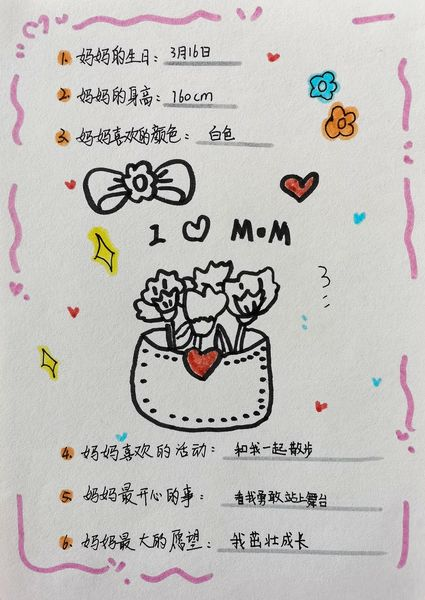 1. 妈妈的生日: 3月16日
2. 妈妈的身高: 160cm
3. 妈妈喜欢的颜色: 白色
I ♡ MOM
4. 妈妈喜欢的活动: 和我一起散步
5. 妈妈最开心的事: 看我勇敢站上舞台
6. 妈妈最大的愿望: 我茁壮成长